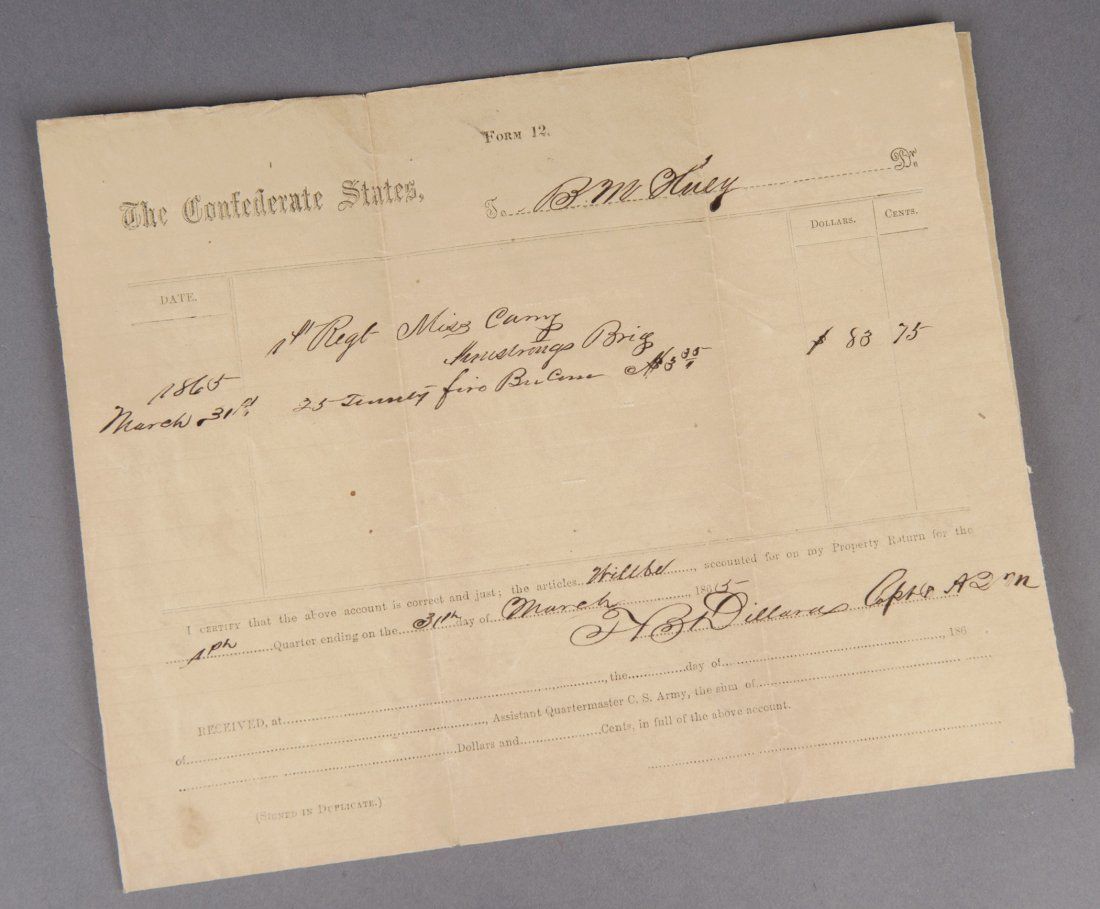 FORM 12.
The Confederate States, To B. M. Huey Dr.
DATE. DOLLARS. CENTS.
1st Regt Miss Cavy
Armstrongs Brig
1865
March 31st 25 Twenty five Bu Corn $3 35/1 $ 83 75
I CERTIFY that the above account is correct and just; the articles Will be, accounted for on my Property Return for the
1st Quarter ending on the 31st day of March, 1865
Dillard Capt & A Q M
RECEIVED, at, the day of, 186
of, Assistant Quartermaster C. S. Army, the sum of
Dollars and Cents, in full of the above account.
(SIGNED IN DUPLICATE.)